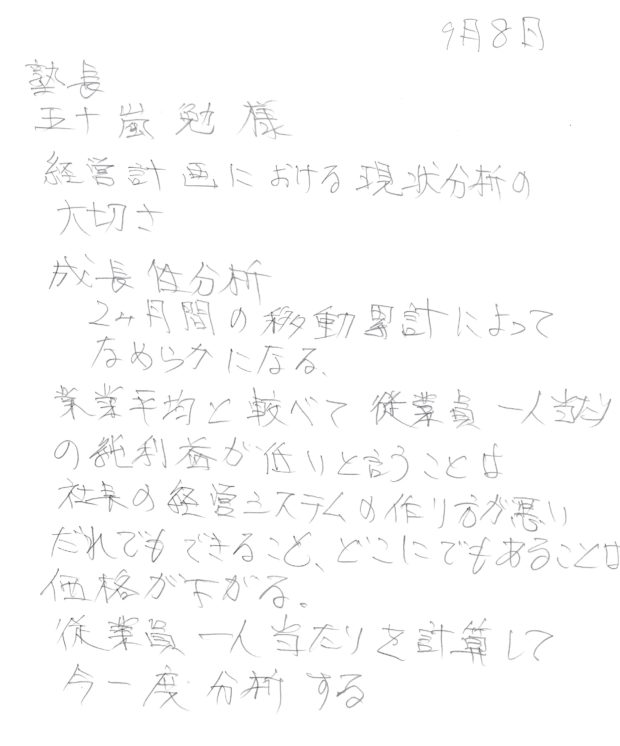 9月8日
塾長
五十嵐勉様
経営計画における現状分析の
大切さ
成長性分析
2ヶ月間の移動累計によって
なめらかになる、
業業平均と較べて従業員一人当たり
の純利益が低いと言うことは
社長の経営システムの作り方が悪い
だれでもできること、どこにでもあることは
価格が下がる。
従業員一人当たりを計算して
今一度分析する